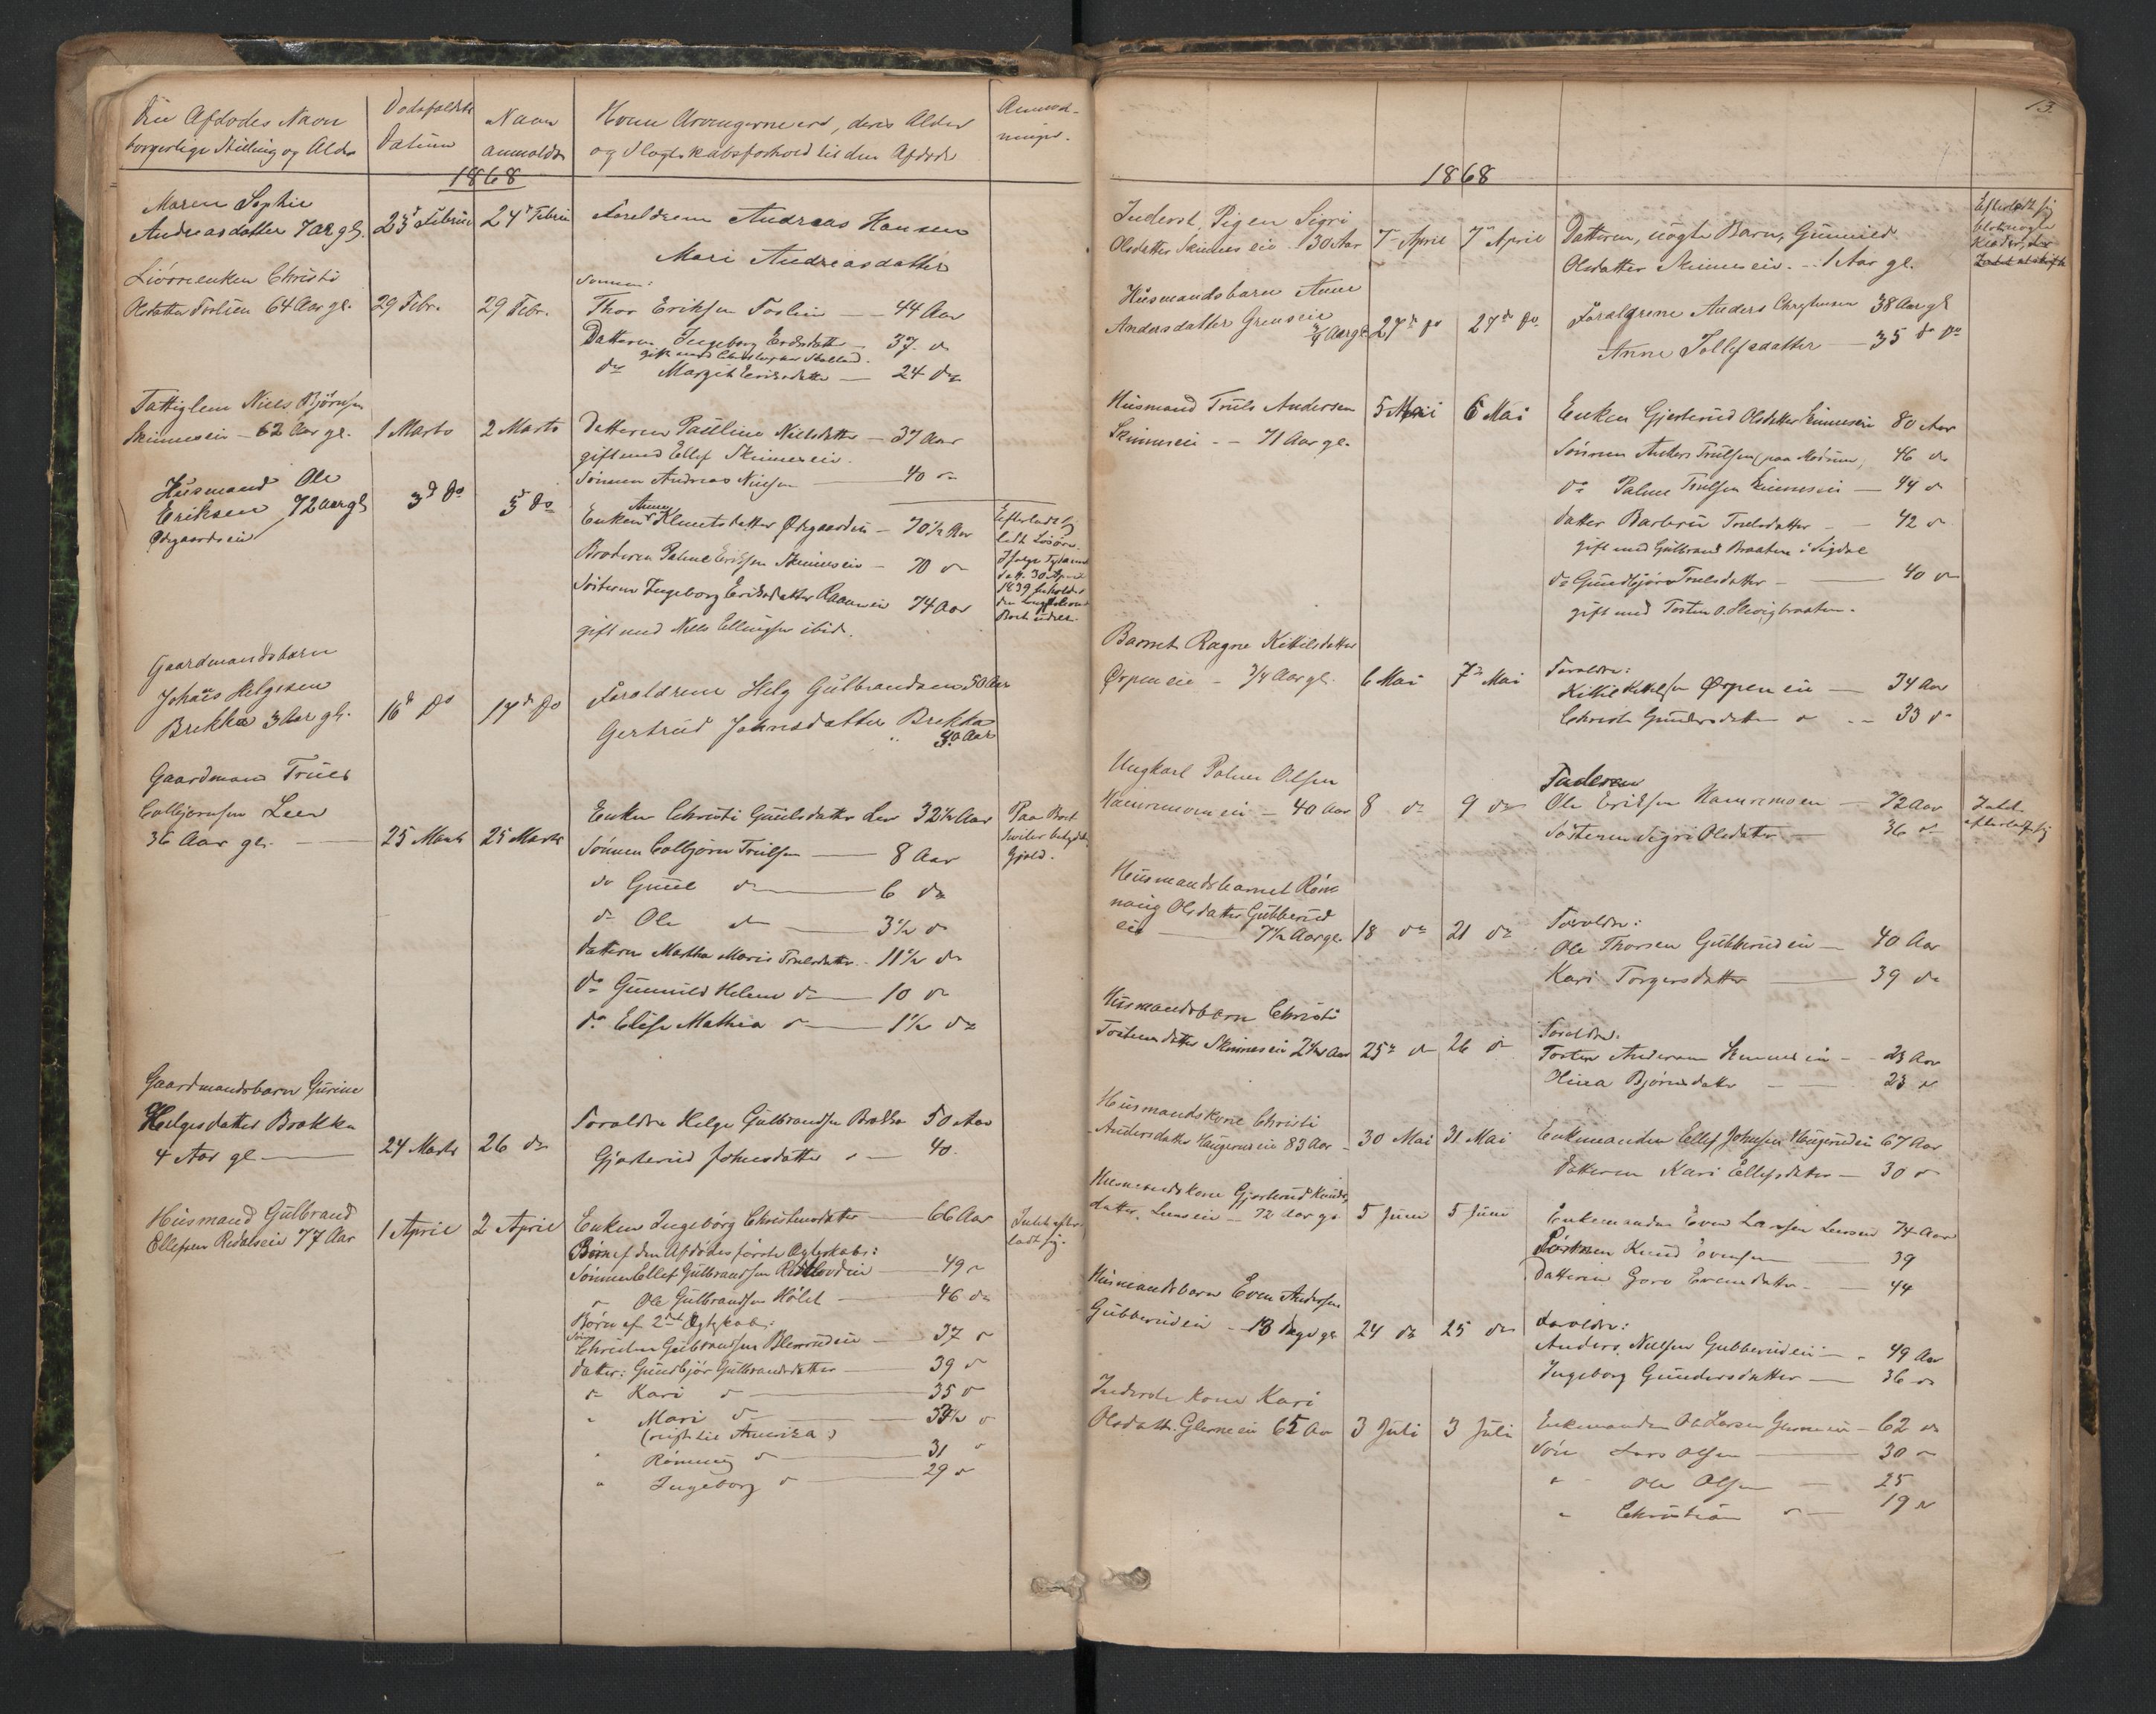 Den Afdødes Navn
borgerlige Stilling og Alder
Dødsfaldets
Datum
Naar
anmeldt
Hvem Arvingerne ere, deres Alder
og Slægtskabsforhold til den Afdøde
Anmærk-
ninger.
1868
Maren Sophie
Andreasdatter 7 Aar gl.
23d Februar
24d Februar
Forældrene Andreas Hansen
Mari Andreasdatter
Christi
Olsdatter Foslien 64 Aar gl.
29 Febr.
29 Febr.
Sønnen:
Thor Eriksen Foslien — 44 Aar
Datteren Ingeborg Eriksdatter — 37 do
gift med
do Margit Eriksdatter — 24 do
Fattiglem Niels Bjørnsen
Skinneseie — 62 Aar gl.
1 Marts
2 Marts
Datteren Pauline Nielsdatter — 37 Aar
gift med Ellef Skinneseie.
Sønnen Andreas Nielsen — 40 do
Huusmand Ole
Eriksen 72 Aar gl.
Øvegaardseie
3d do
5 do
Anne
Enken Knutsdatter Øvegaardseie — 70½ Aar
Broderen Palme Eriksen Skinneseie — 70 do
Søsteren Ingeborg Eriksdatter 74 Aar
gift med Niels Ellingsen ibid.
Efterladt sig
lidt Løsøre.
Ifølge Testament
dat. 30 April
1839 beholder
den længstlevende
Boet udeelt.
Gaardmandsbarn
Johans Helgesen
Brekka 3 Aar gl.
16d do
17d do
Forældrene Helg Gulbrandsen 50 Aar
Gertrud Johnsdatter Brekka
40 Aar
Gaardmand Truls
Colbjørnsen Leen
36 Aar gl. —
25 Marts
25 Marts
Enken Christi Guulsdatter Leen 32½ Aar
Sønnen Colbjørn Trulsen — 8 Aar
do Guul do — 6 do
do Ole do — 3½ do
Datteren Martha Marie Trulsdatter — 11½ do
do Gunnild Helene do — 10 do
do Elise Mathea do — 1½ do
Paa Boet
hviler betydelig
Gjæld.
Gaardmandsbarn Gurine
Helgesdatter Brekka
4 Aar gl —
24 Marts
26 do
Forældre Helge Gulbrandsen Brekka 50 Aar
Gjertrud Johnsdatter do — 40.
Huusmand Gulbrand
Ellefsen Redalseie 77 Aar
1 April
2 April
Enken Ingeborg Christensdatter — 66 Aar
Børn af den Afdødes første Ægteskab:
Sønnen Ellef Gulbrandsen — 49 do
do Ole Gulbrandsen Hølet — 46 do
Børn af 2det Ægteskab:
Christen Gulbrandsen — 37 do
Datter: Gundbjør Gulbrandsdatter — 39 do
do Kari do — 35 do
" Mari do —
(reist til America)
" Rønnaug do — 31 do
" Ingeborg do — 29 do
Intet efter-
ladt sig.
13.
1868
Inderst, Pigen Sigri
Olsdatter Skinneseie 30 Aar
7de April
7de April
Datteren, uægte Barn, Gunnild
Olsdatter Skinneseie. — 1 Aar gl.
Efterladt sig
ubetydelige
Klæder,
Huusmandsbarn Anne
Andersdatter Grenseie
¾ Aar gl.
27de do
27de do
Forældrene Anders Christensen 38 Aar gl
Anne Tollefsdatter — 35 do do
Huusmand Truls Andersen
Skinneseie — 71 Aar gl.
5 Mai
6 Mai
Enken Gjertrud Olsdatter Skinneseie 80 Aar
Sønnen Anders Trulsen (paa Modum) 46 do
do Palme Trulsen Skinneseie — 44 do
Datter Barbro Trulsdatter — 42 do
gift med Gulbrand Braaten i Sigdal
do Gundbjør Trulsdatter — 40 do
gift med Tosten O.
Barnet Ragne Kittilsdatter
Ørpeneie — ¾ Aar gl.
6 Mai
7de Mai
Forældre:
Kittil Kittilsen Ørpeneie — 34 Aar
Christi Gundersdatter do — 33 do
Ungkarl Palme Olsen
Hamremoeneie — 40 Aar
8 do
9 do
Faderen
Ole Eriksen Hamremoen — 72 Aar
Søsteren Sigri Olsdatter — 36 do
Intet
efterladt sig
Huusmandsbarnet Røn-
naug Olsdatter Gubberud
eie — 7½ Aar gl.
18 do
21 do
Forældre:
Ole Thorsen Gubberudeie — 40 Aar
Kari Torgersdatter — 39 do
Huusmandsbarn Christi
Tostensdatter Skinneseie 2½ Aar
25de do
26 do
Forældre.
Tosten Andersen Skinneseie — 23 Aar
Olina Bjørnsdatter — 23 do
Huusmandskone Christi
Andersdatter Haugerudeie 83 Aar
30 Mai
31 Mai
Enkemanden Ellef Johnsen Haugerudeie 67 Aar
Datteren Kari Ellefsdatter — 30 do
Huusmandskone Gjertrud Knuds-
datter, Leenseie — 72 Aar gl
5 Juni
5 Juni
Enkemanden Even Larsen Leenseie 74 Aar
Sønnen Knud Evensen — 39
Datteren Goro Evensdatter — 44
Huusmandsbarn Even Andersen
Gubberudeie — 13 Dage gl.
24 do
25 do
Forældre:
Anders Nielsen Gubberudeie — 49 Aar
Ingeborg Gundersdatter — 36 do
Inderste Kone Kari
Olsdatt. Glerneeie 65 Aar
3 Juli
3 Juli
Enkemanden Ole Larsen Glerneeie — 62 do
Søn Lars Olsen — 30 do
" Ole Olsen — 25
" Christian do — 19 do